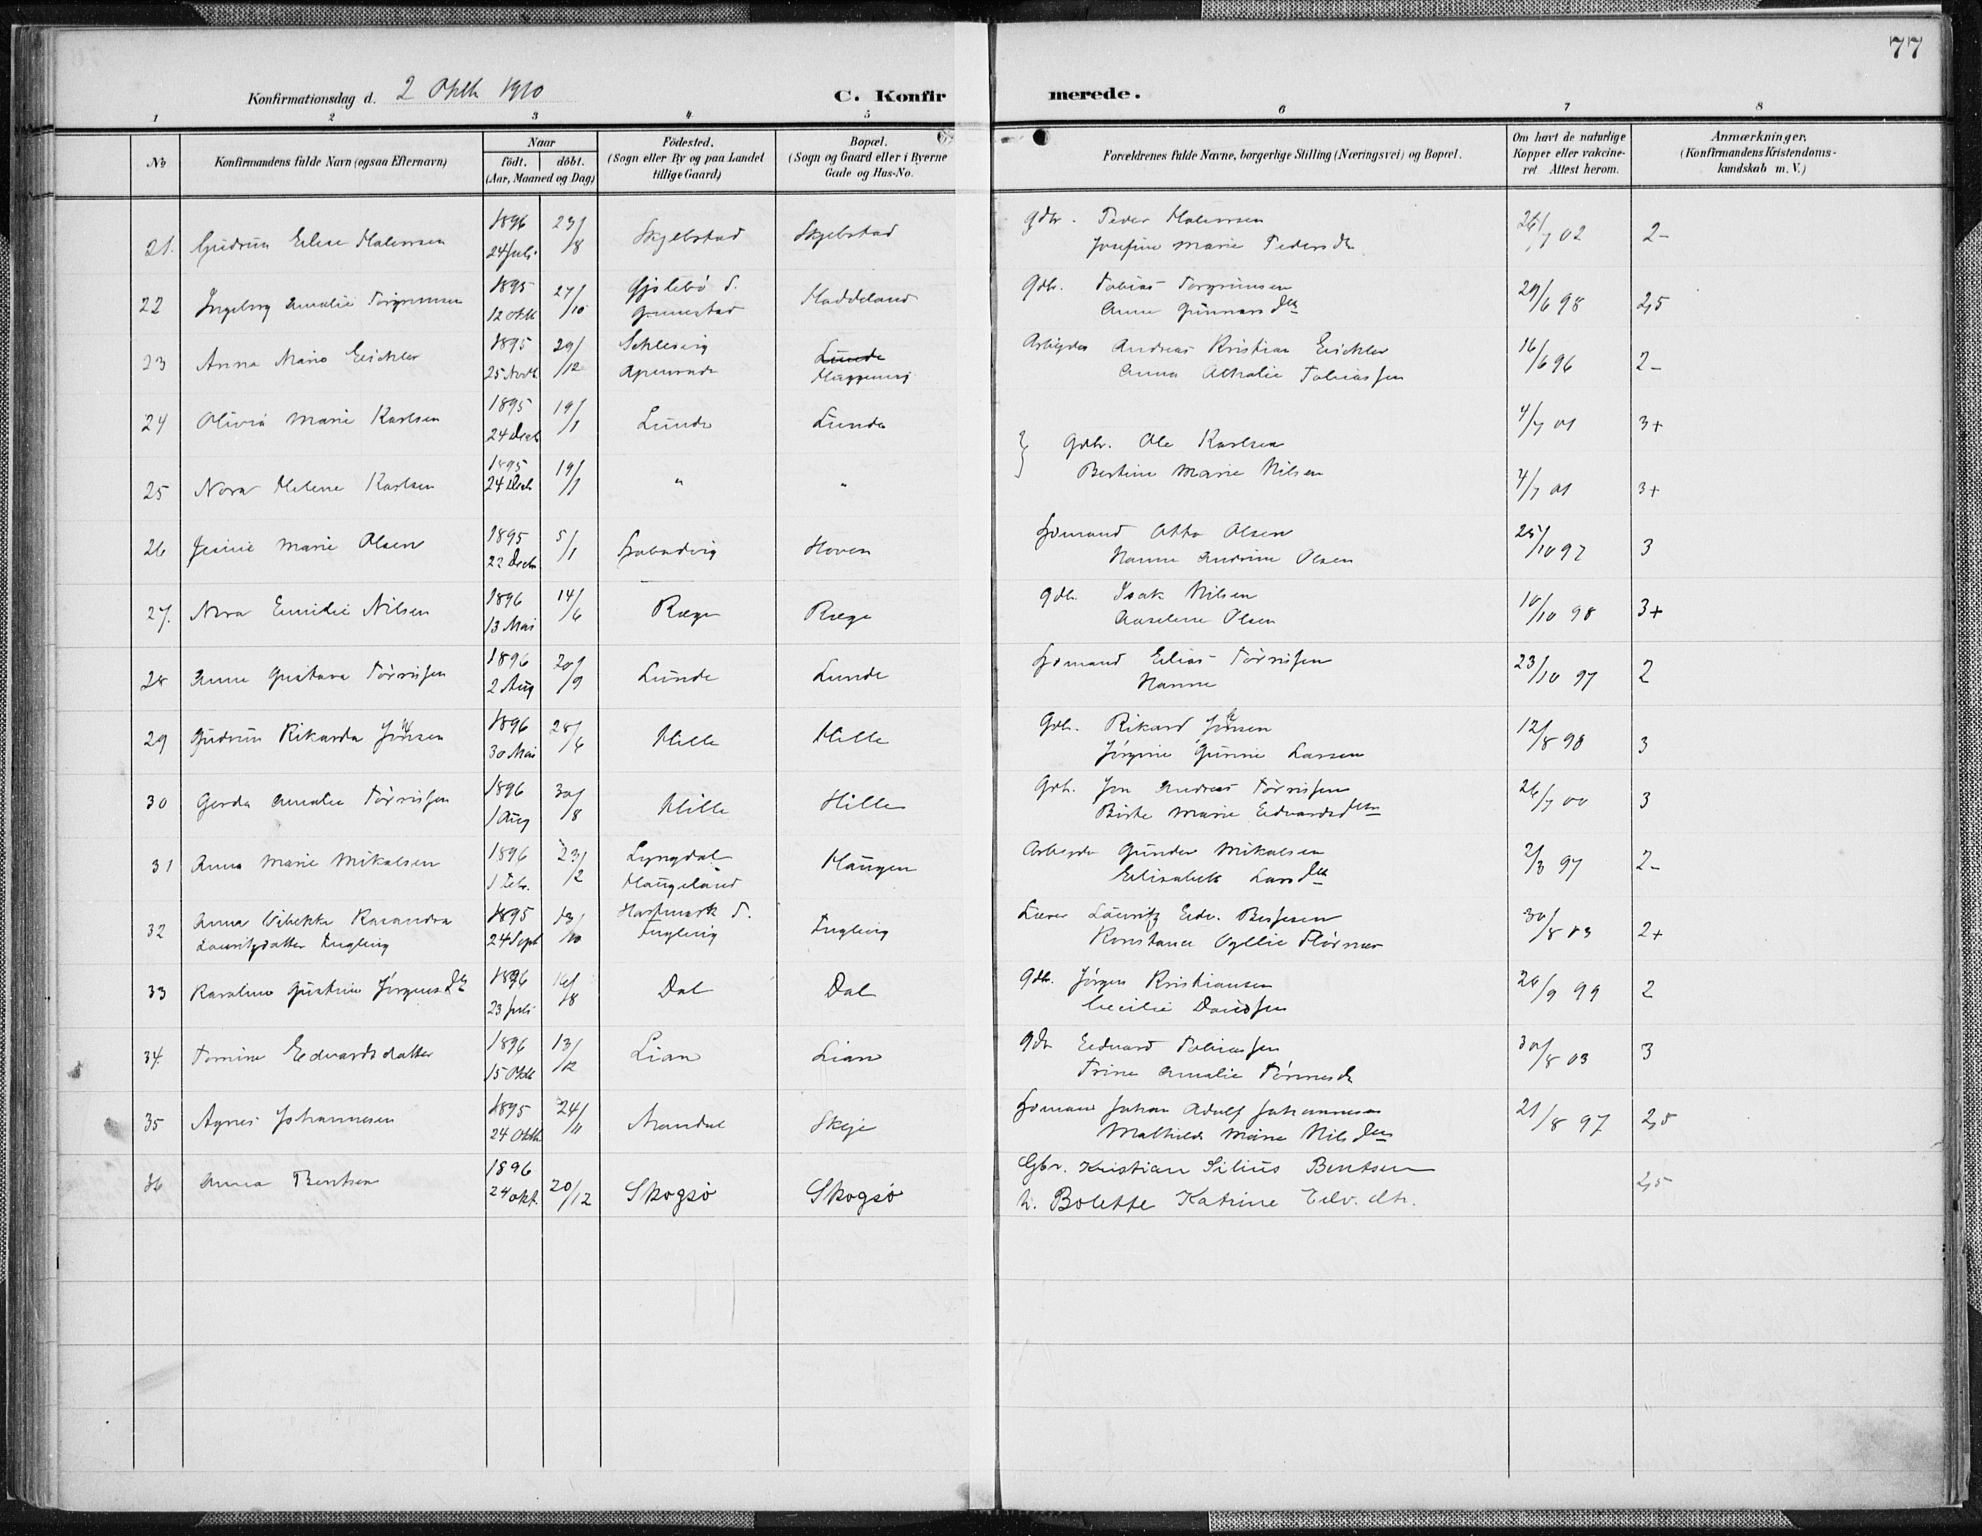 77
Konfirmationsdag d. 2 Oktb 1910 C. Konfirmerede.
1 2 3 4 5 6 7 8
No
Konfirmandens fulde Navn (ogsaa Efternavn)
Naar
födt. döbt.
(Aar, Maaned og Dag)
Födested.
(Sogn eller By og paa Landet
tillige Gaard)
Bopæl.
(Sogn og Gaard eller i Byerne
Gade og Hus-No.
Forældrenes fulde Navne, borgerlige Stilling (Næringsvei) og Bopæl.
Om havt de naturlige
Kopper eller vakcine-
ret Attest herom.
Anmærkninger,
(Konfirmandens Kristendoms-
kundskab m. V.)
21. Gudrun Elise 1896 24 Juli 23/8 Skjelstad Skjelstad Gbr. Peder
Josefine Marie Pedersdtr 26/7 02 2-
22 Ingeborg Amalie Torgrimsen 1895 12 Oktb 27/10 Haddeland Gbr. Tobias Torgrimsen
Anne Gunnarsdtr 29/6 98 2,5
23 Anna Marie Eichler 1895 25 Novb 29/12 Schlesvig
Apenrade Lunde
Arbeyder Andreas Kristian Eichler
Anna Athalie Tobiassen 16/6 96 2-
24 Olivia Marie Karlsen 1895 24 Decb 19/1 Lunde Lunde 4/7 01 3+
} Gbr. Ole Karlsen
Bertine Marie Nilsen
25 Nora Helene Karlsen 1895 24 Decb 19/1 " " 4/7 01 3+
26 Jenine Marie Olsen 1895 22 Decb 5/1 Hoven Sjømand Otto Olsen
Hanne Andrine Olsen 25/10 97 3
27. Nora Emilie Nilsen 1896 13 Mai 14/6 Ræge Ræge Gbr. Isak Nilsen
Olsen 10/10 98 3+
28 Anne Gustava Tørrissen 1896 2 Aug 20/9 Lunde Lunde Sjømand Elias Tørrissen
Hanne 23/10 97 2
29 Gudrun Rikarda Jensen 1896 30 Mai 28/6 Hille Hille Gbr. Rikard Jensen
Jørgine Gurine Larsen 12/8 98 3
30 Gerda Amalie Tørrissen 1896 1 Aug 30/8 Hille Hille Gbr. Jon Andreas Tørrissen
Birte Marie Edvardsdtr 26/7 00 3
31 Anna Marie Mikalsen 1896 1 Febr. 23/2 Lyngdal
Haugeland Haugen Arbeyder Gunder Mikalsen
Elisabeth Larsdtr 2/8 97 2-
32 Anna Vibekke Rasandra
Lauritzdatter Tugling 1895 24 Septb 13/10 Hartmark S.
Tugling Tugling Lærer Lauritz Edv. Bessesen
Konstance Oyllie Flørnes 30/8 03 2+
33 Karoline Gustine Jørgensdtr 1896 23 Juli 16/8 Dal Dal Gbr. Jørgen Kristiansen
Cecilie Davidsen 26/9 99 2
34. Tomine Edvardsdatter 1896 15 Oktb 13/12 Lian Lian Gbr Edvard Tobiassen
Trine Amalie Tønnesdtr 30/8 03 3
35 Agnes Johannesen 1895 24 Oktb 24/11 Mandal Skeje Sjømand Johan Adolf Johannesen
Mathilde Marie Nilsdtr 21/8 97 2,5
36 Anna Bentsen 1896 24 okt. 20/12 Skogsø Skogsø Gbr. Kristian Silius Bentsen
h. Bolette Katrine Edv.dtr. 2,5